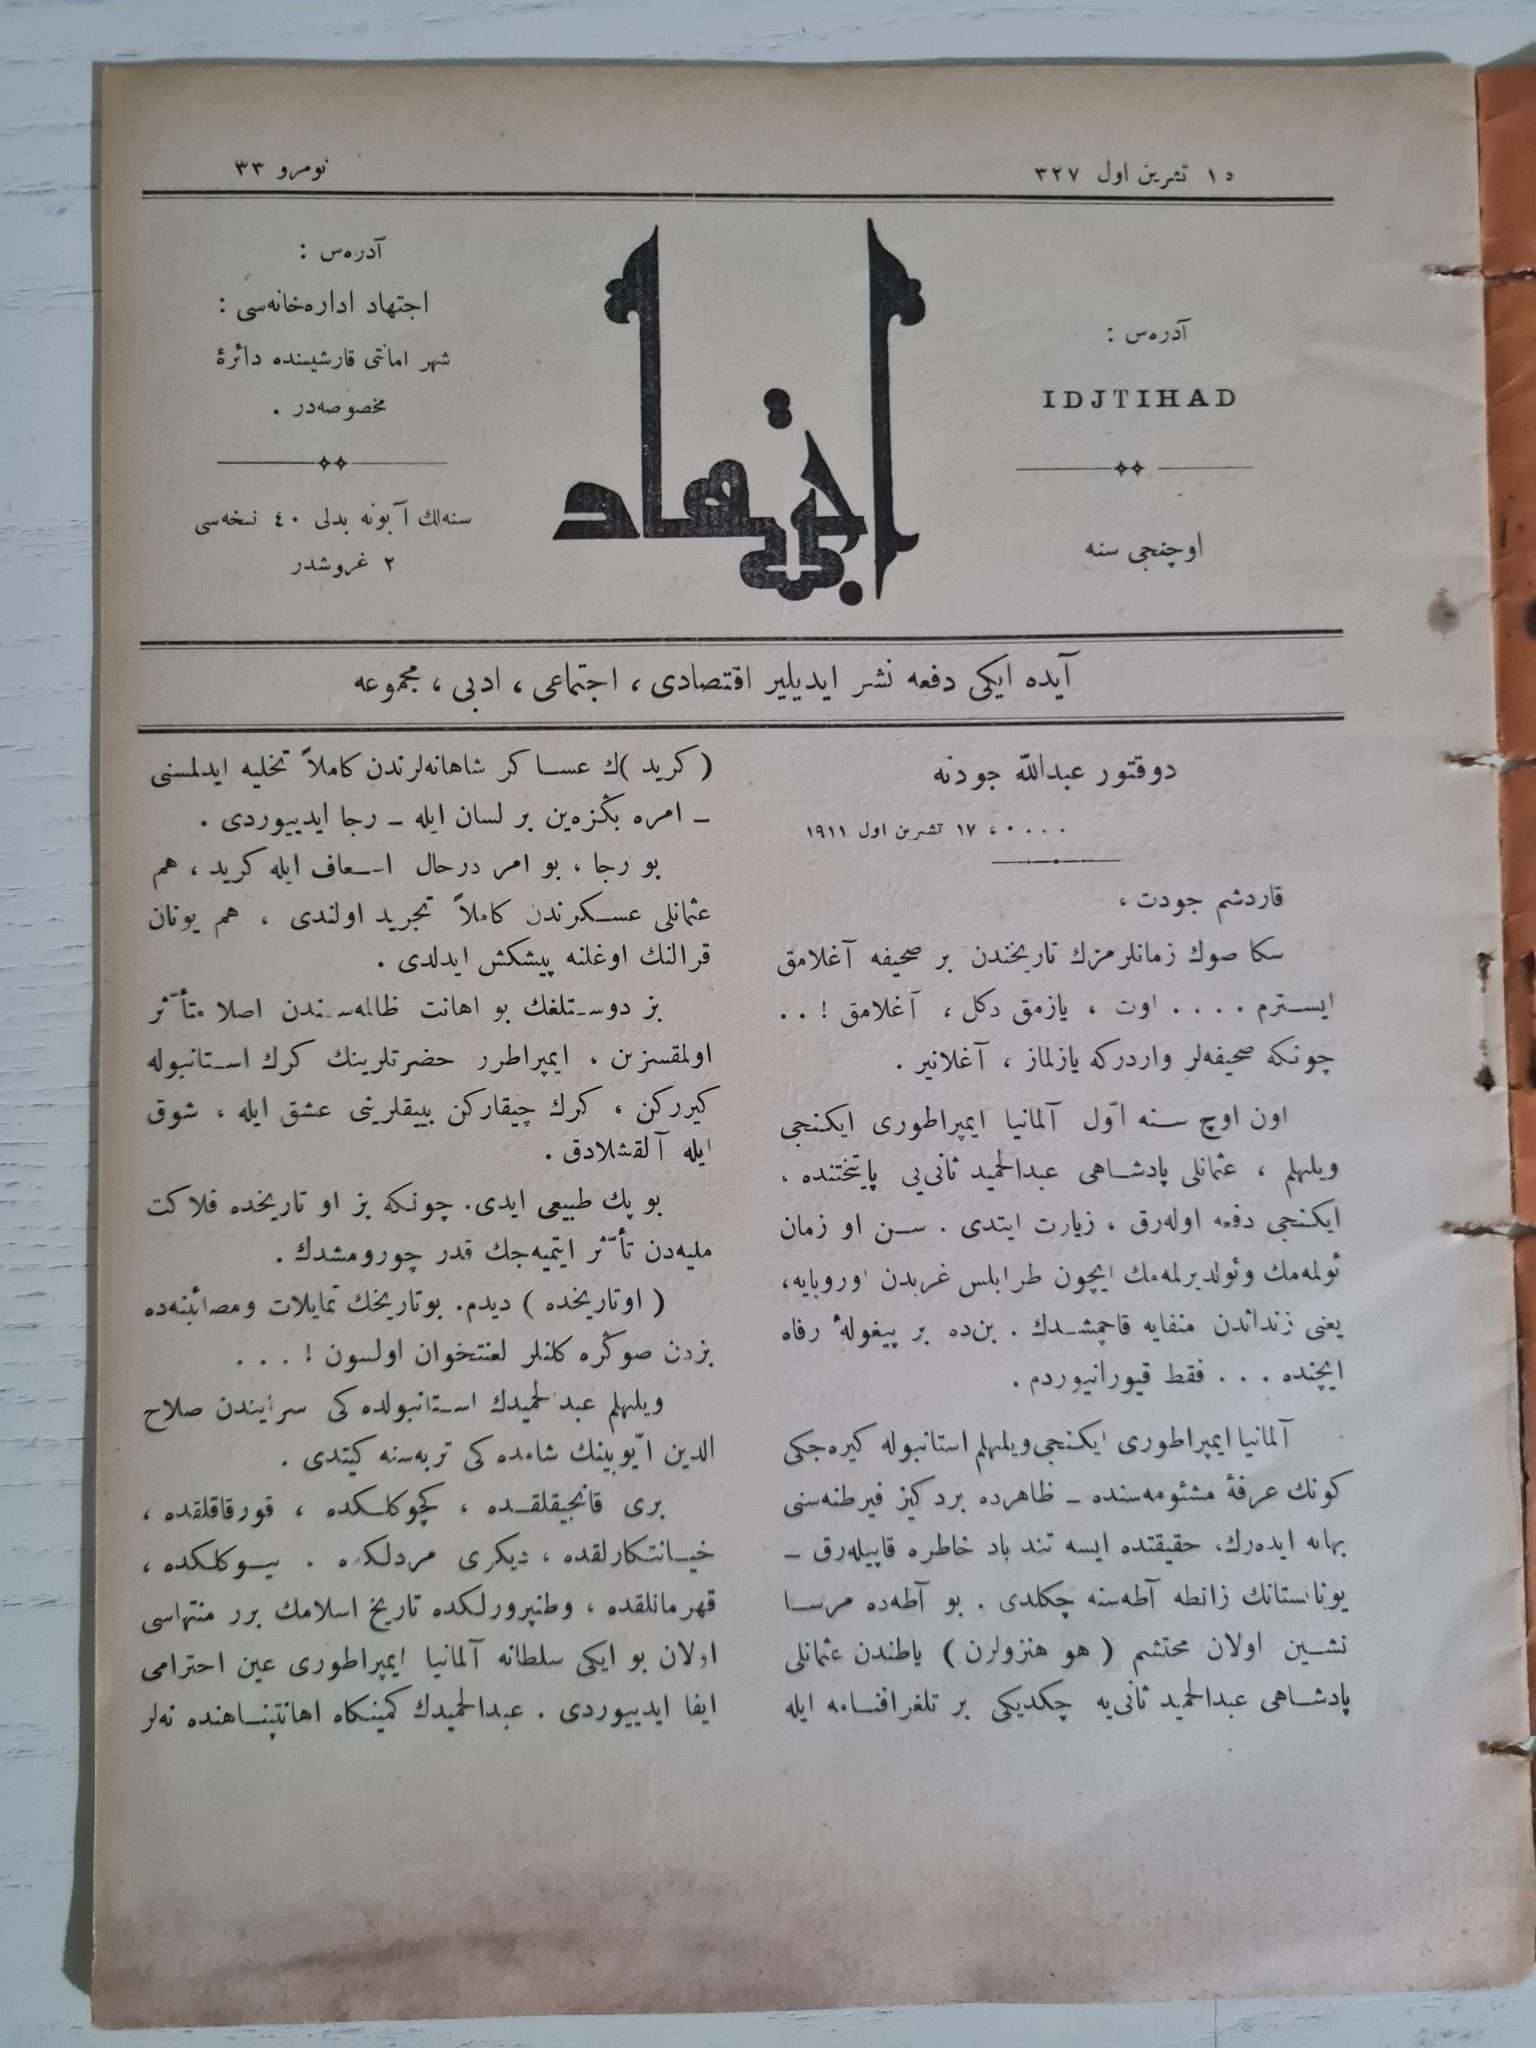 ١٥ تشرين اول ٣٢٧
نومرو ٣٣
آدره‌س :
IDJTIHAD
اوچنجى سنه
اجتهاد
آدره‌س :
اجتهاد اداره‌خانه‌سى :
شهر امانتى قارشيسنده دائرهٔ
مخصوصه‌در .
سنه‌لك آبونه بدلى ٤٠ نسخه‌سى
٢ غروشدر
آيده ايكى دفعه نشر ايديلير اقتصادى ، اجتماعى ، ادبى ، مجموعه
دوقتور عبدالله جودته
. . . . ، ١٧ تشرين اول ١٩١١
قاردشم جودت ،
سكا صوك زمانلرمزك تاريخندن بر صحيفه آغلامق
ايسترم . . . . اوت ، يازمق دكل ، آغلامق ! . .
چونكه صحيفه‌لر واردركه يازلماز ، آغلانير .
اون اوچ سنه اوّل آلمانيا ايمپراطورى ايكنجى
ويلهلم ، عثمانلى پادشاهى عبدالحميد ثانى‌يى پايتختنده ،
ايكنجى دفعه اوله‌رق ، زيارت ايتدى . سن او زمان
ئولمه‌مك وئولديرلمه‌مك ايچون طرابلس غربدن اوروپايه،
يعنى زنداندن منفايه قاچمشدك . بن‌ده بر پيغولهٔ رفاه
ايچنده . . . فقط قيورانيوردم .
آلمانيا ايمپراطورى ايكنجى ويلهلم استانبوله كيره‌جكى
كونك عرفهٔ مشئومه‌سنده ـ ظاهرده بر دكيز فيرطنه‌سنى
بهانه ايده‌رك، حقيقتده ايسه تند باد خاطره قاپيله‌رق ـ
يونانستانك زانطه آطه‌سنه چكلدى . بو آطه‌ده مرسا
نشين اولان محتشم ( هو هنزولرن ) ياطندن عثمانلى
پادشاهى عبدالحميد ثانى‌يه چكديكى بر تلغرافنامه ايله
( كريد )ك عساكر شاهانه‌لرندن كاملاً تخليه ايدلمسنى
ـ امره بكزه‌ين بر لسان ايله ـ رجا ايدييوردى .
بو رجا ، بو امر درحال اسعاف ايله كريد ، هم
عثمانلى عسكرندن كاملاً تجريد اولندى ، هم يونان
قرالنك اوغلنه پيشكش ايدلدى .
بز دوستلغك بو اهانت ظالمه‌سندن اصلا متأثّر
اولمقسزين ، ايمپراطور حضرتلرينك كرك استانبوله
كيرركن ، كرك چيقاركن بييقلرينى عشق ايله ، شوق
ايله آلقشلادق .
بو پك طبيعى ايدى. چونكه بز او تاريخده فلاكت
مليه‌دن تأثّر ايتميه‌جك قدر چورومشدك .
( اوتاريخده ) ديدم. بوتاريخك تمايلات ومصائبنه‌ده
بزدن صوڭره كلنلر لعنتخوان اولسون ! . . .
ويلهلم عبدالحميدك استانبولده كى سرايندن صلاح
الدين ايّوبينك شامده كى تربه‌سنه كيتدى .
برى قانجيقلقده ، كچوكلكده ، قورقاقلقده ،
خيانتكارلقده ، ديكرى مردلكده . بيوكلكده ،
قهرمانلقده ، وطنپرورلكده تاريخ اسلامك برر منتهاسى
اولان بو ايكى سلطانه آلمانيا ايمپراطورى عين احترامى
ايفا ايدييوردى . عبدالحميدك كمينكاه اهانتپناهنده نه‌لر